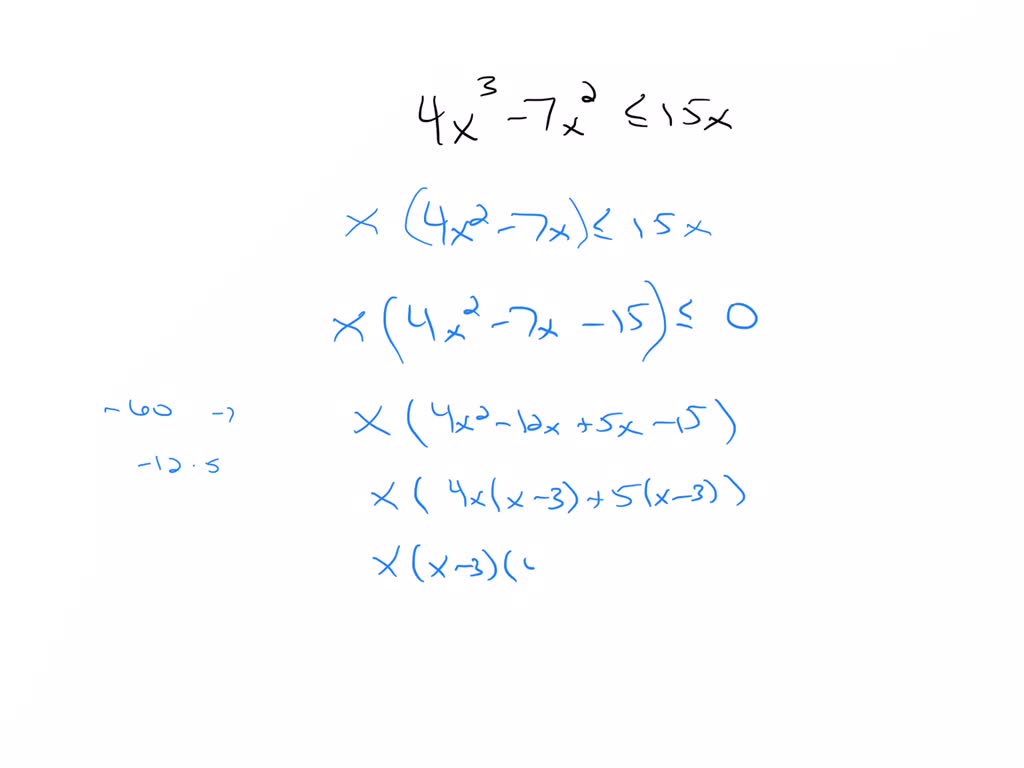 4x³ -7x² ≤ 15x
x (4x² -7x) ≤ 15x
x (4x² -7x -15) ≤ 0
-60 -7
x (4x² -12x +5x -15)
-12 · 5
x ( 4x(x-3) + 5(x-3) )
x (x-3)(